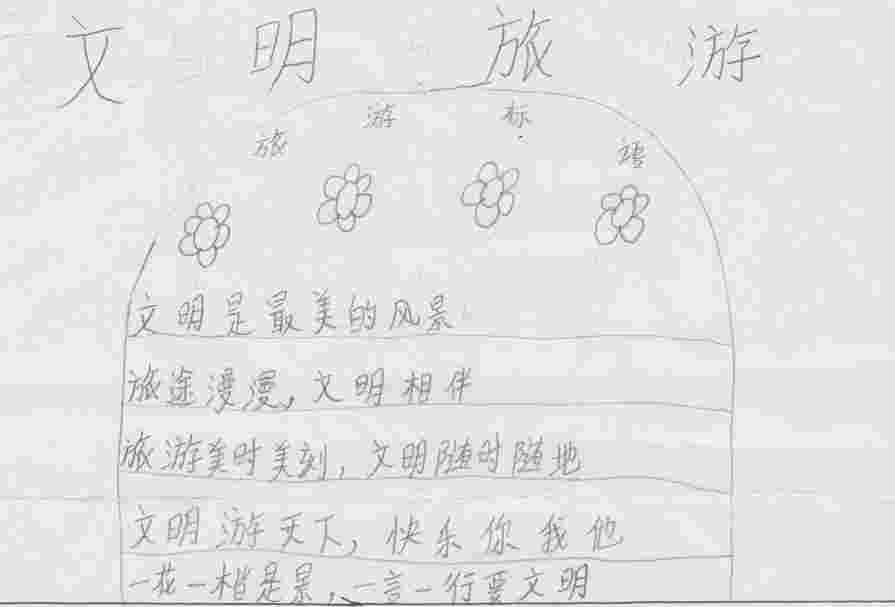 文明旅游
旅游标语
文明是最美的风景
旅途漫漫,文明相伴
旅游美时美刻,文明随时随地
文明游天下,快乐你我他
一花一楷是景,一言一行要文明